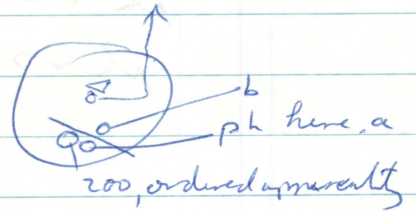 b
ph here, a
200, ordered apparently